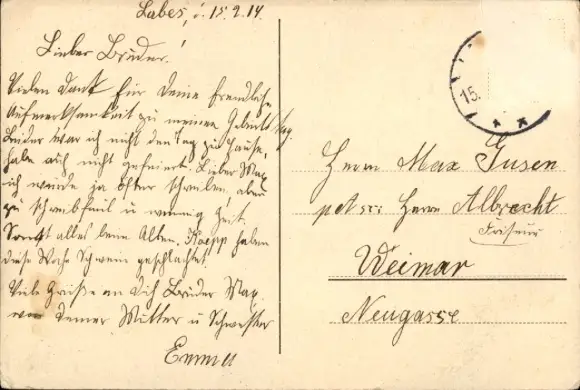 Labes, d. 15.2.14
Lieber Bruder!
Vielen Dank für Deine freundliche
Aufmerksamkeit zu meinem Geburtstag.
Leider war ich nicht den Tag zu Hause,
habe auch nicht gefeiert. Lieber Max
ich würde ja öfter schreiben, aber
zu schreibfaul u wenig Zeit.
Sonst alles beim Alten. Koepp haben
diese Woche Schwein geschlachtet.
Viele Grüße an Dich Bruder Max
von Deiner Mutter u Schwester
Emma
15.
Herrn Max Gusen
p Adr: Herrn Albrecht
Friseur
Weimar
Neugasse